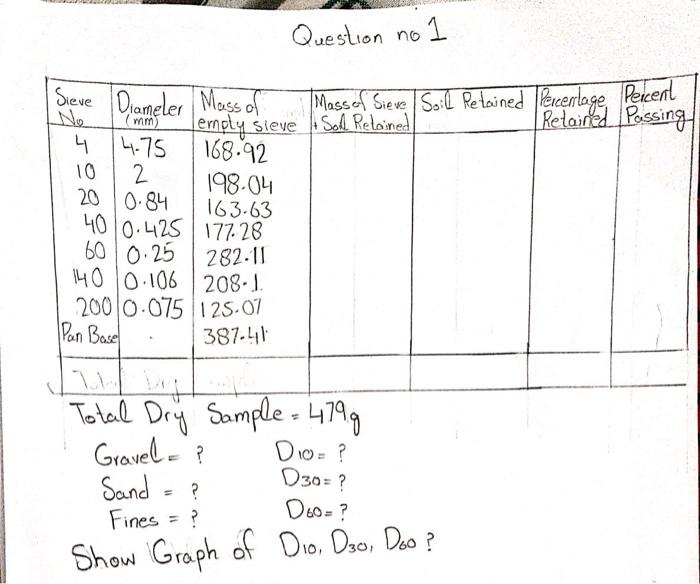 Question no 1
Sieve No Diameter (mm) Mass of empty sieve Mass of Sieve + Soil Retained Soil Retained Percentage Retained Percent Passing
4 4.75 168.92
10 2 198.04
20 0.84 163.63
40 0.425 177.28
60 0.25 282.11
140 0.106 208.1
200 0.075 125.07
Pan Base 387.41
Total Dry Sample = 479g
Gravel = ? D10 = ?
Sand = ? D30 = ?
Fines = ? D60 = ?
Show Graph of D10, D30, D60 ?